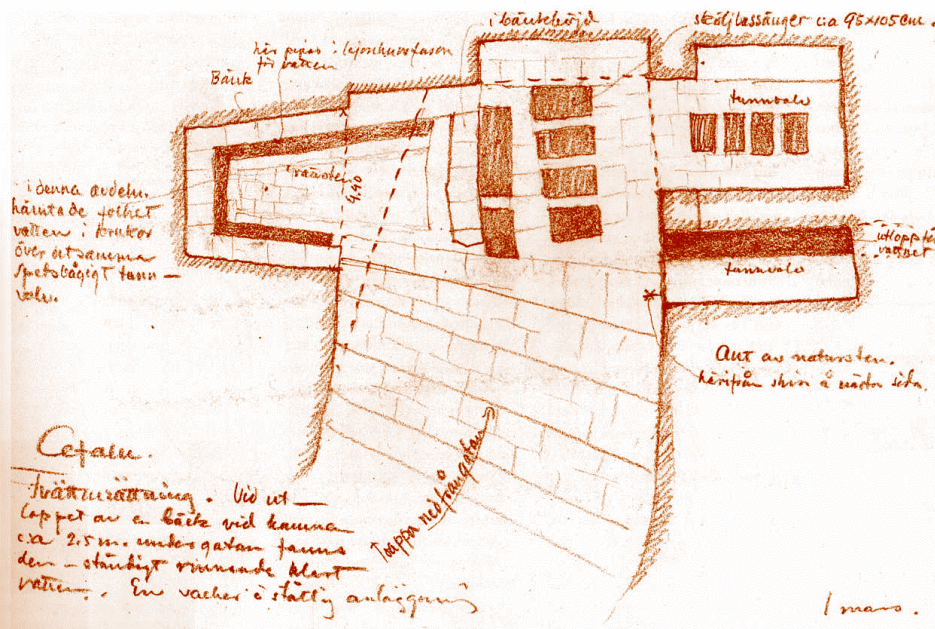 i bänkhöjd
sköljbassänger c:a 95x105 cm.
här pipor i lejonhuvufason
för vatten
Bänk
tunnvalv
4,40
i denna avdeln.
hämtade folket
vatten i krukor
över det samma
spetsbågigt tunn
valv.
utlopp för
vattnet
tunnvalv
Ant av natursten.
härifrån skiss å nästa sida.
Trappa ned från gatan
Cefalu.
Tvättinrättning. Vid ut
loppet av en bäck vid hamnen
c:a 2.5 m. under gatan fanns
den – ständigt rinnande klart
vatten. En vacker o ståtlig anläggning
1 mars.